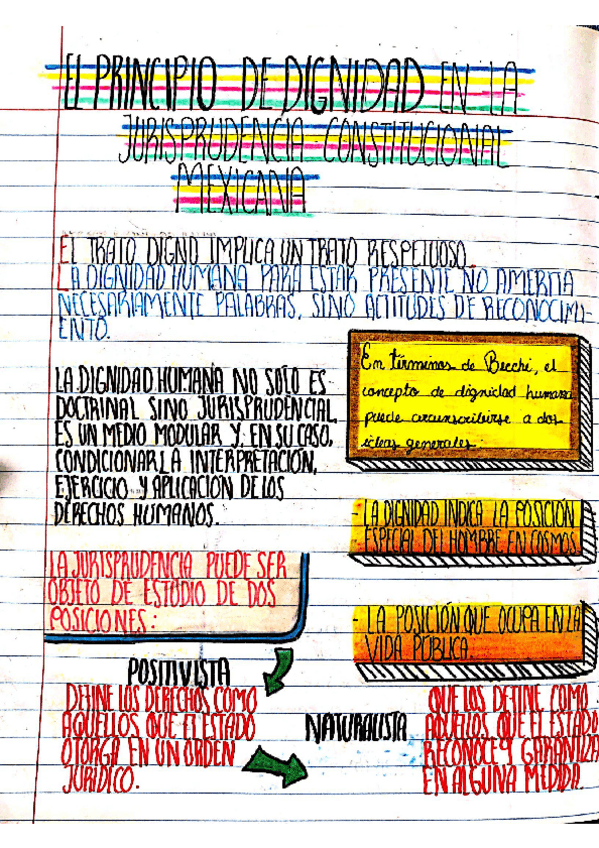 EL PRINCIPIO DE DIGNIDAD EN LA
JURISPRUDENCIA CONSTITUCIONAL
MEXICANA
EL TRATO DIGNO IMPLICA UN TRATO RESPETUOSO.
LA DIGNIDAD HUMANA PARA ESTAR PRESENTE NO AMERITA
NECESARIAMENTE PALABRAS, SINO ACTITUDES DE RECONOCIMI-
ENTO.
LA DIGNIDAD HUMANA NO SÓLO ES
DOCTRINAL SINO JURISPRUDENCIAL,
ES UN MEDIO MODULAR Y, EN SU CASO,
CONDICIONAR LA INTERPRETACIÓN,
EJERCICIO Y APLICACIÓN DE LOS
DERECHOS HUMANOS.
En términos de Becchi, el
concepto de dignidad humana
puede circunscribirse a dos
ideas generales:
- LA DIGNIDAD INDICA LA POSICIÓN
ESPECIAL DEL HOMBRE EN COSMOS
- LA POSICIÓN QUE OCUPA EN LA
VIDA PÚBLICA.
LA JURISPRUDENCIA PUEDE SER
OBJETO DE ESTUDIO DE DOS
POSICIONES:
POSITIVISTA
DEFINE LOS DERECHOS COMO
AQUELLOS QUE EL ESTADO
OTORGA EN UN ORDEN
JURÍDICO.
NATURALISTA
QUE LOS DEFINE COMO
AQUELLOS QUE EL ESTADO
RECONOCE Y GARANTIZA
EN ALGUNA MEDIDA.